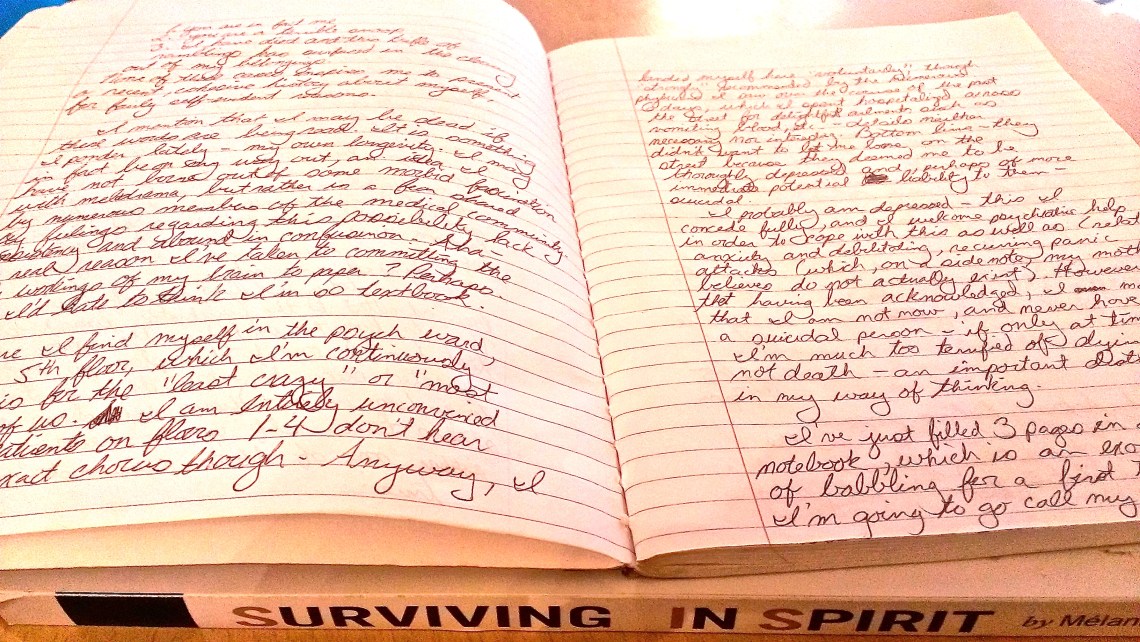 1. You are in fact me
2. You are a terrible snoop
3. I have died and this bundle of
ramblings has surfaced in the clearing
out of my belongings.
None of these cases inspires me to present
a recent, cohesive history about myself,
for fairly self-evident reasons.
I mention that I may be dead if
these words are being read. It is something
I ponder lately - my own longevity. I may
in fact be on my way out, an idea I
have not born out of some morbid fascination
with melodrama, but rather is a fear shared
by numerous members of the medical community.
My feelings regarding this possibility lack
consistency and abound in confusion. The
real reason I've taken to committing the
workings of my brain to paper? Perhaps.
I'd hate to think I'm so textbook.
I find myself in the psych ward,
5th floor, which I'm continuously
is for the "least crazy" or "most
of us. I am entirely unconvinced
patients on floors 1-4 don't hear
exact chorus though. Anyway, I
landed myself here "voluntarily" though
"strongly" recommended by the numerous
physicians I saw over the course of the past
days, which I spent hospitalized across
the street for delightful ailments such as
vomiting blood, etc - details neither
necessary nor intriguing. Bottom line - they
didn't want to let me loose on the
street because they deemed me to be
thoroughly depressed and perhaps of more
immediate potential liability to them -
suicidal.
I probably am depressed - this I
concede fully, and I welcome psychiatric help
in order to cope with this as well as
anxiety and debilitating, recurring panic
attacks (which, on a side note, my
believes do not actually exist). However
that having been acknowledged, I
that I am not now, and never have
a suicidal person - if only at
I'm much too terrified of
not death - an important
in my way of thinking.
I've just filled 3 pages in
notebook, which is an
of babbling for a first
I'm going to go call my
SURVIVING IN SPIRIT by Mélan